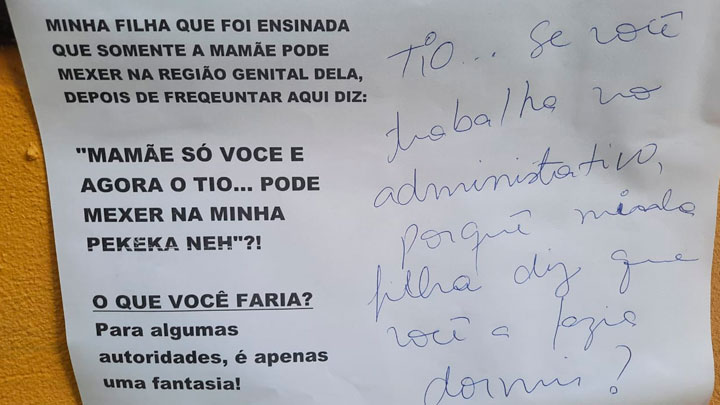 MINHA FILHA QUE FOI ENSINADA
QUE SOMENTE A MAMÃE PODE
MEXER NA REGIÃO GENITAL DELA,
DEPOIS DE FREQEUNTAR AQUI DIZ:
"MAMÃE SÓ VOCE E
AGORA O TIO... PODE
MEXER NA MINHA
PEKEKA NEH"?!
O QUE VOCÊ FARIA?
Para algumas
autoridades, é apenas
uma fantasia!
TIO... se você
trabalha no
administrativo,
porquê minha
filha diz que
você a fazia
dormir?